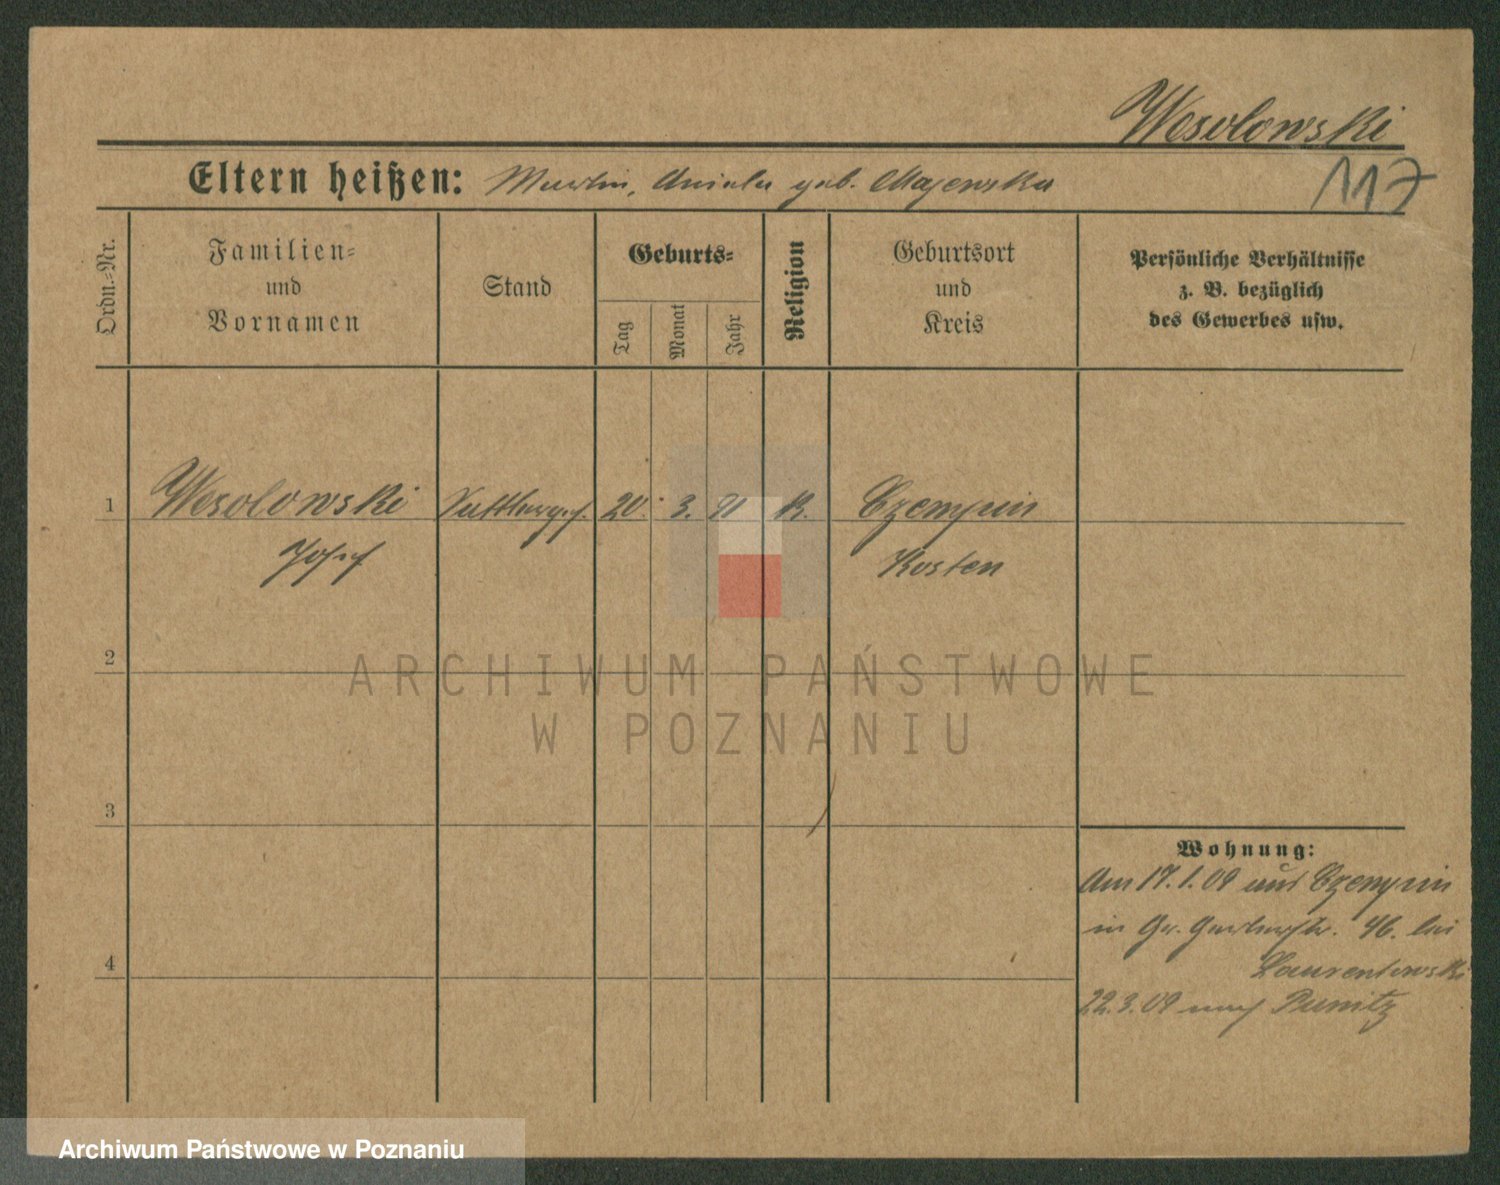 Wesolowski
Eltern heißen: Martin, Aniela geb. Majewska
117
Ordn.-Nr.
Familien-
und
Vornamen
Stand
Geburts-
Tag
Monat
Jahr
Religion
Geburtsort
und
Kreis
Persönliche Verhältnisse
z. B. bezüglich
des Gewerbes usw.
1
Wesolowski
Josef
Sattlerges.
20. 3. 91
K.
Czempin
Kosten
2
ARCHIWUM PAŃSTWOWE
W POZNANIU
3
Wohnung:
Am 17.1.09 aus Czempin
in Gr. Gerberstr. 46. bei
Laurentowski
22.3.09 nach Punitz
4
Archiwum Państwowe w Poznaniu